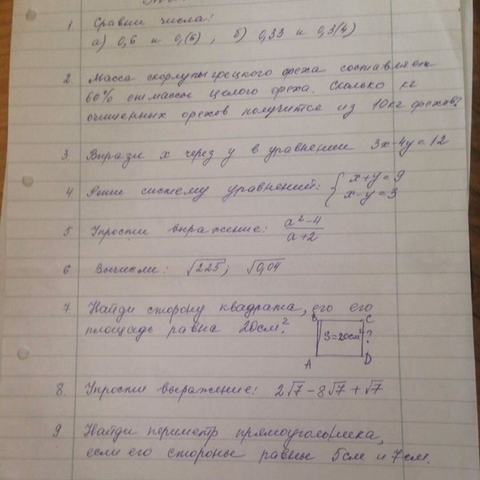 1. Сравни числа:
а) 0,6 и 0,(6), б) 0,33 и 0,3(4)
2. Масса скорлупы грецкого ореха составляет
60% от массы целого ореха. Сколько кг
очищенных орехов получится из 10 кг орехов?
3. Вырази x через y в уравнении 3x-4y=12
4. Реши систему уравнений: { x+y=9
x-y=3
5 Упрости выражение: a²-4
a+2
6 Вычисли: √225; √0,04
7. Найди сторону квадрата, его его
площадь равна 20см².
B C
S=20см² ?
A D
8. Упрости выражение: 2√7-8√7+√7
9 Найди периметр прямоугольника,
если его стороны равны 5см и 7см.